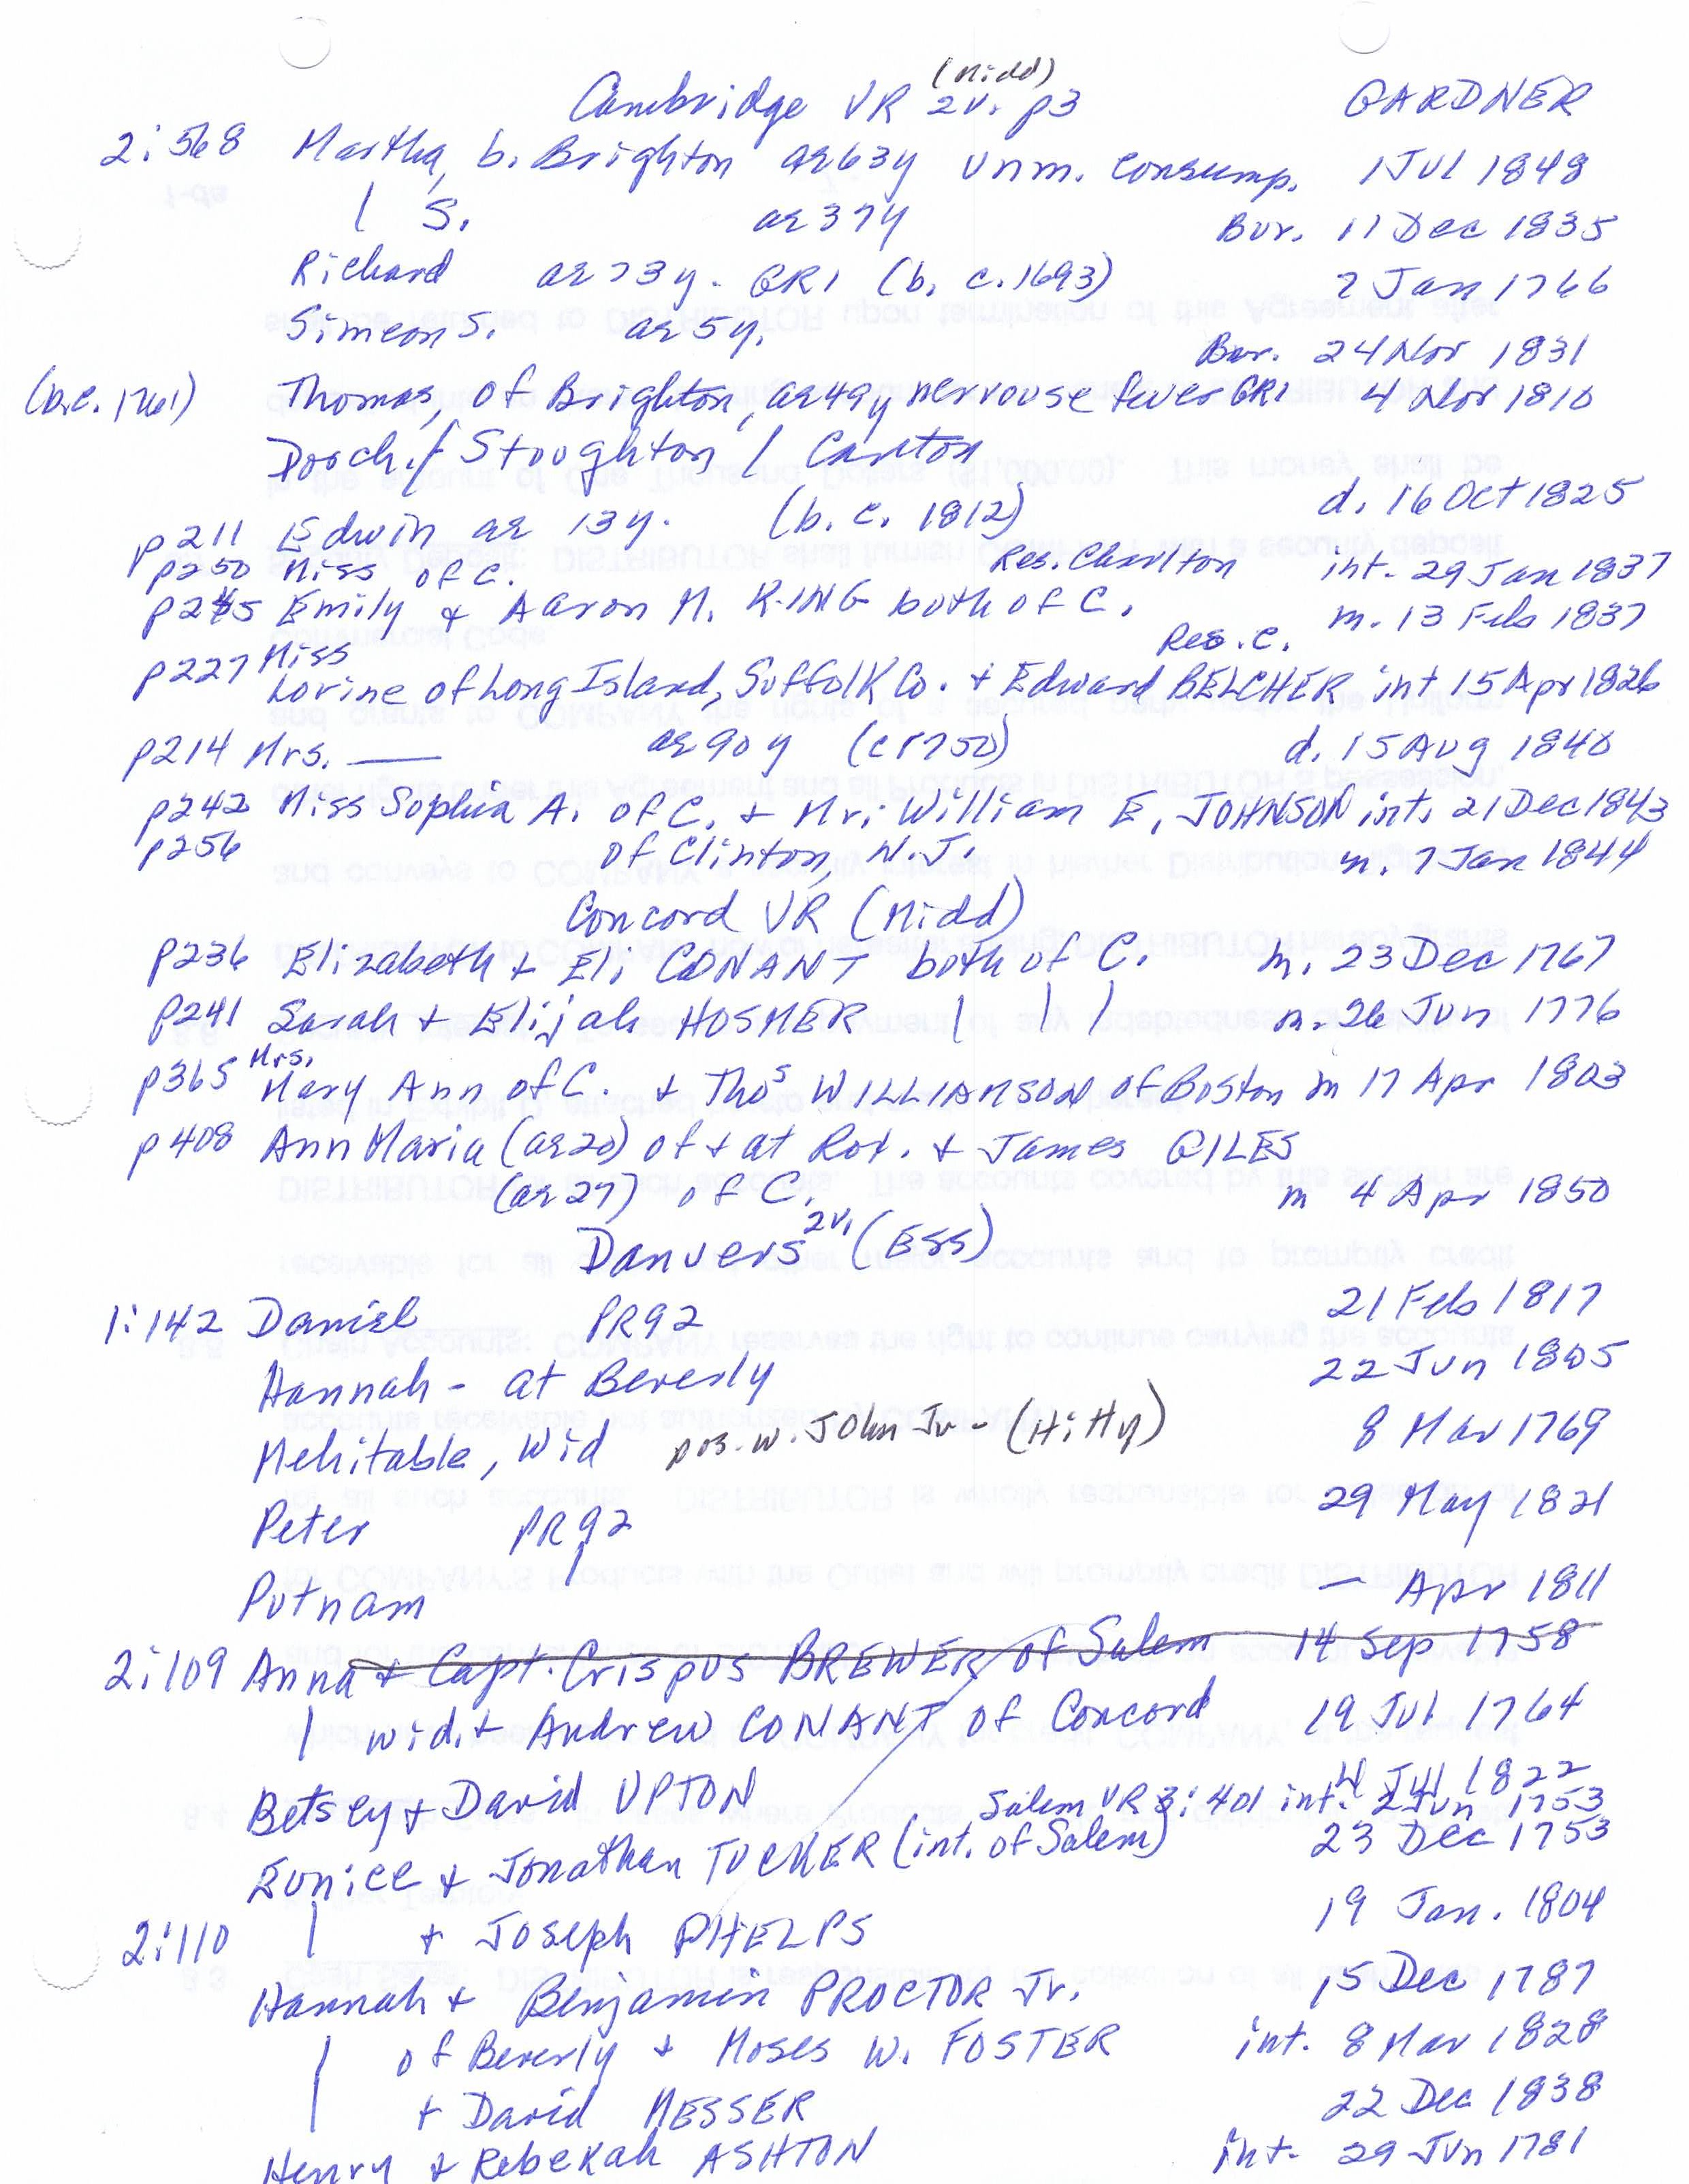 (Midd)
Cambridge VR 2v. p3 GARDNER
2:568 Martha, b. Brighton ae 63y unm. consump. 1 Jul 1848
| S. ae 37y Bur. 11 Dec 1835
Richard ae 73y. GR1 (b. c. 1693) 7 Jan 1766
Simeon S. ae 5y. Bur. 24 Nov 1831
(b.c. 1761) Thomas, of Brighton, ae 49y nervouse fever GR1 4 Nov 1810
Dorch. / Stoughton / Canton
p211 Edwin ae 13y. (b. c. 1812) d. 16 Oct 1825
p250 Miss of C. Res. Charlton int. 29 Jan 1837
p245 Emily + Aaron M. KING both of C. m. 13 Feb 1837
Res. C.
p227 Miss
Lorine of Long Island, Suffolk Co. + Edward BELCHER int 15 Apr 1826
p214 Mrs. —— ae 90y (c1750) d. 15 Aug 1840
p242 Miss Sophia A. of C. + Mr. William E. JOHNSON int. 21 Dec 1843
p256 of Clinton, N.J. m. 7 Jan 1844
Concord VR (Midd)
p236 Elizabeth + Eli CONANT both of C. m. 23 Dec 1767
p241 Sarah + Elijah HOSMER | | | m. 26 Jun 1776
p365 Mrs.
Mary Ann of C. + Thos WILLIAMSON of Boston m 17 Apr 1803
p408 Ann Maria (ae 20) of + at Rox. + James GILES
(ae 27) of C. m 4 Apr 1850
Danvers 2v. (Ess)
1:142 Daniel PR92 21 Feb 1817
Hannah - at Beverly 22 Jun 1805
Mehitable, wid pos. w. John Jr - (Hitty) 8 Mar 1769
Peter PR92 29 May 1821
Putnam | — Apr 1811
2:109 Anna + Capt. Crispus BREWER of Salem 14 Sep 1758
| wid. + Andrew CONANT of Concord 19 Jul 1764
Betsey + David UPTON 4 Jul 1822
Salem VR 3:401 int. 2 Jun 1753
Eunice + Jonathan TUCKER (int. of Salem) 23 Dec 1753
2:110 | + Joseph PHELPS 19 Jan. 1804
Hannah + Benjamin PROCTOR Jr. 15 Dec 1787
| of Beverly + Moses W. FOSTER int. 8 Mar 1828
| + David MESSER 22 Dec 1838
Henry + Rebekah ASHTON int. 29 Jun 1781